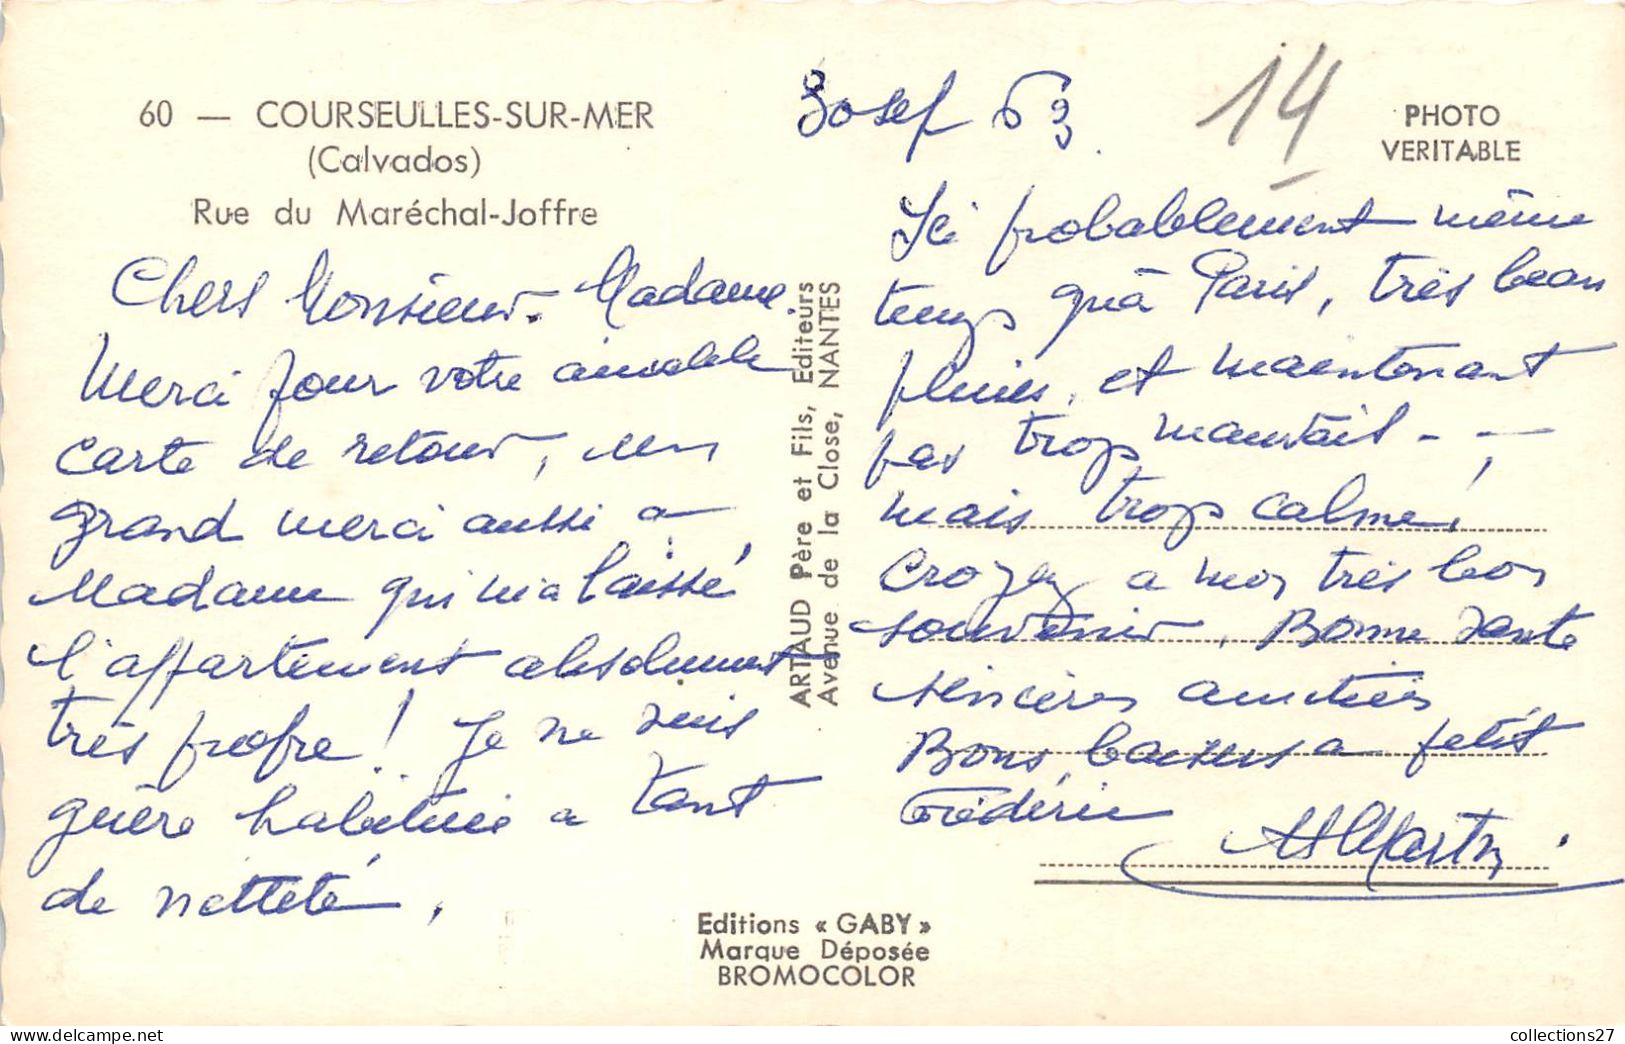 60 — COURSEULLES-SUR-MER
(Calvados)
Rue du Maréchal-Joffre
Chers Monsieur. Madame
Merci pour votre aimable
carte de retour, un
grand merci aussi a
Madame qui m'a laissé
l'appartement absolument
très propre ! Je ne suis
guère habituée a tant
de netteté.
ARTAUD Père et Fils, Editeurs
Avenue de la Close, NANTES
Editions « GABY »
Marque Déposée
BROMOCOLOR
63
14
PHOTO
VERITABLE
Ici probablement même
temps qu'à Paris, très beau
pluies, et maintenant
pas trop mauvais - -
mais trop calme !
Croyez a mon très bon
souvenir, Bonne santé
sincères amitiés
Bons baisers a petit
Frédéric
Martin
collections27